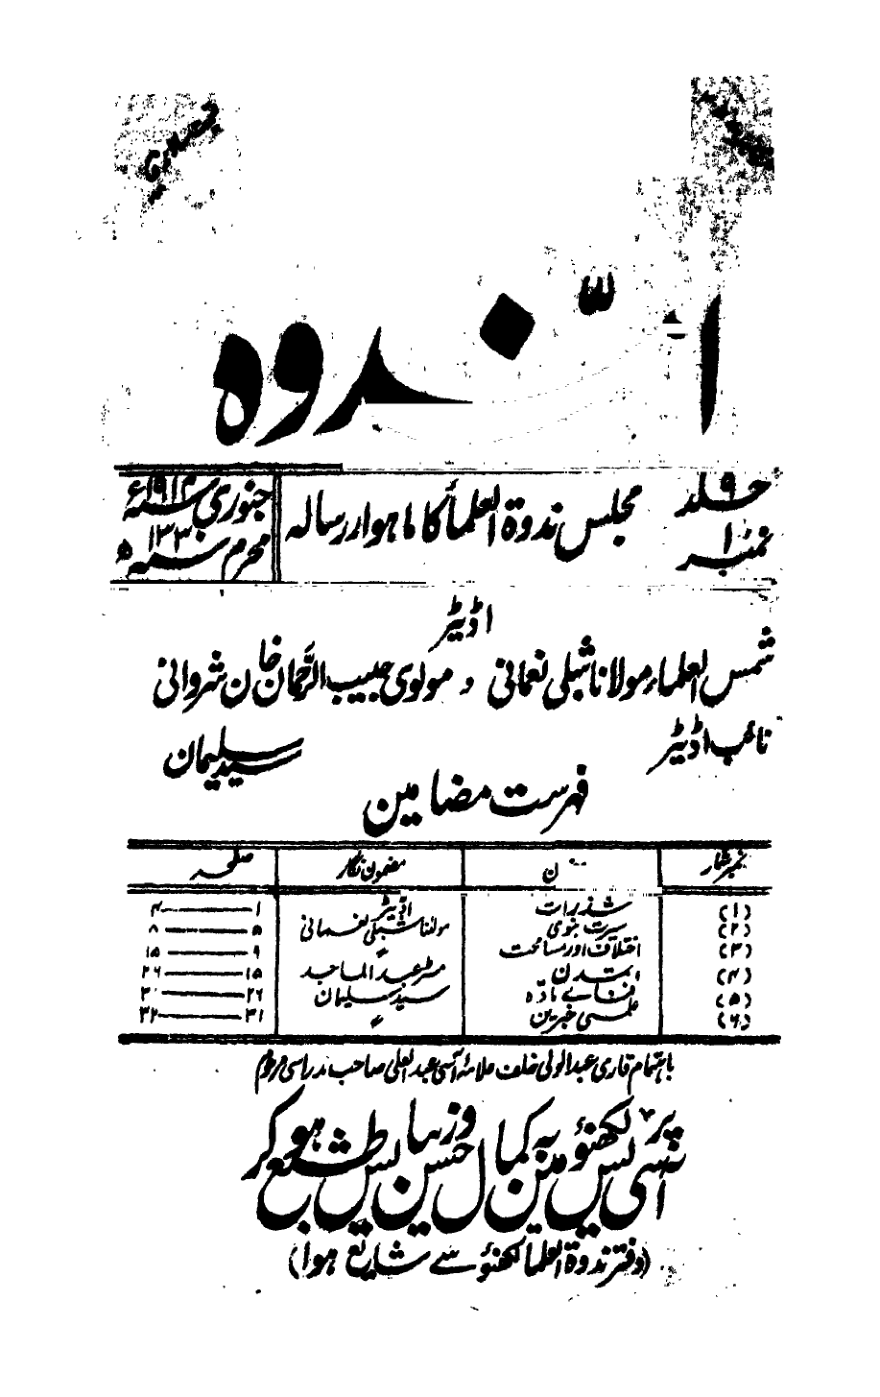 الندوہ
جلد ۹ نمبر ۱
مجلس ندوۃ العلما کا ماہوار رسالہ
جنوری سنہ ۱۹۱۲ ء
محرم سنہ ۱۳۳۰ ھ
اڈیٹر
شمس العلماء مولانا شبلی نعمانی و مولوی حبیب الرحمان خان شروانی
نائب اڈیٹر سید سلیمان
فہرست مضامین
نمبر شمار مضمون نگار صفحہ
(۱) شذرات اڈیٹر ۱ — ۴
(۲) سیرت نبوی مولنا شبلی نعمانی ۵ — ۸
(۳) اختلاف اور مسامحت " ۹ — ۱۵
(۴) مسٹر عبدالماجد ۱۵ — ۲۶
(۵) فنائے مادّہ سید سلیمان ۲۶ — ۳۰
(۶) علمی خبرین " ۳۱ — ۳۲
باہتمام قاری عبدالولی خلف علامۂ آسی عبدالعلی صاحب مدراسی مرحوم
آسی پریس لکھنؤ مین بہ کمال حسن وزیبایش طبع ہو کر
(دفتر ندوۃ العلما لکھنؤ سے شایع ہوا)